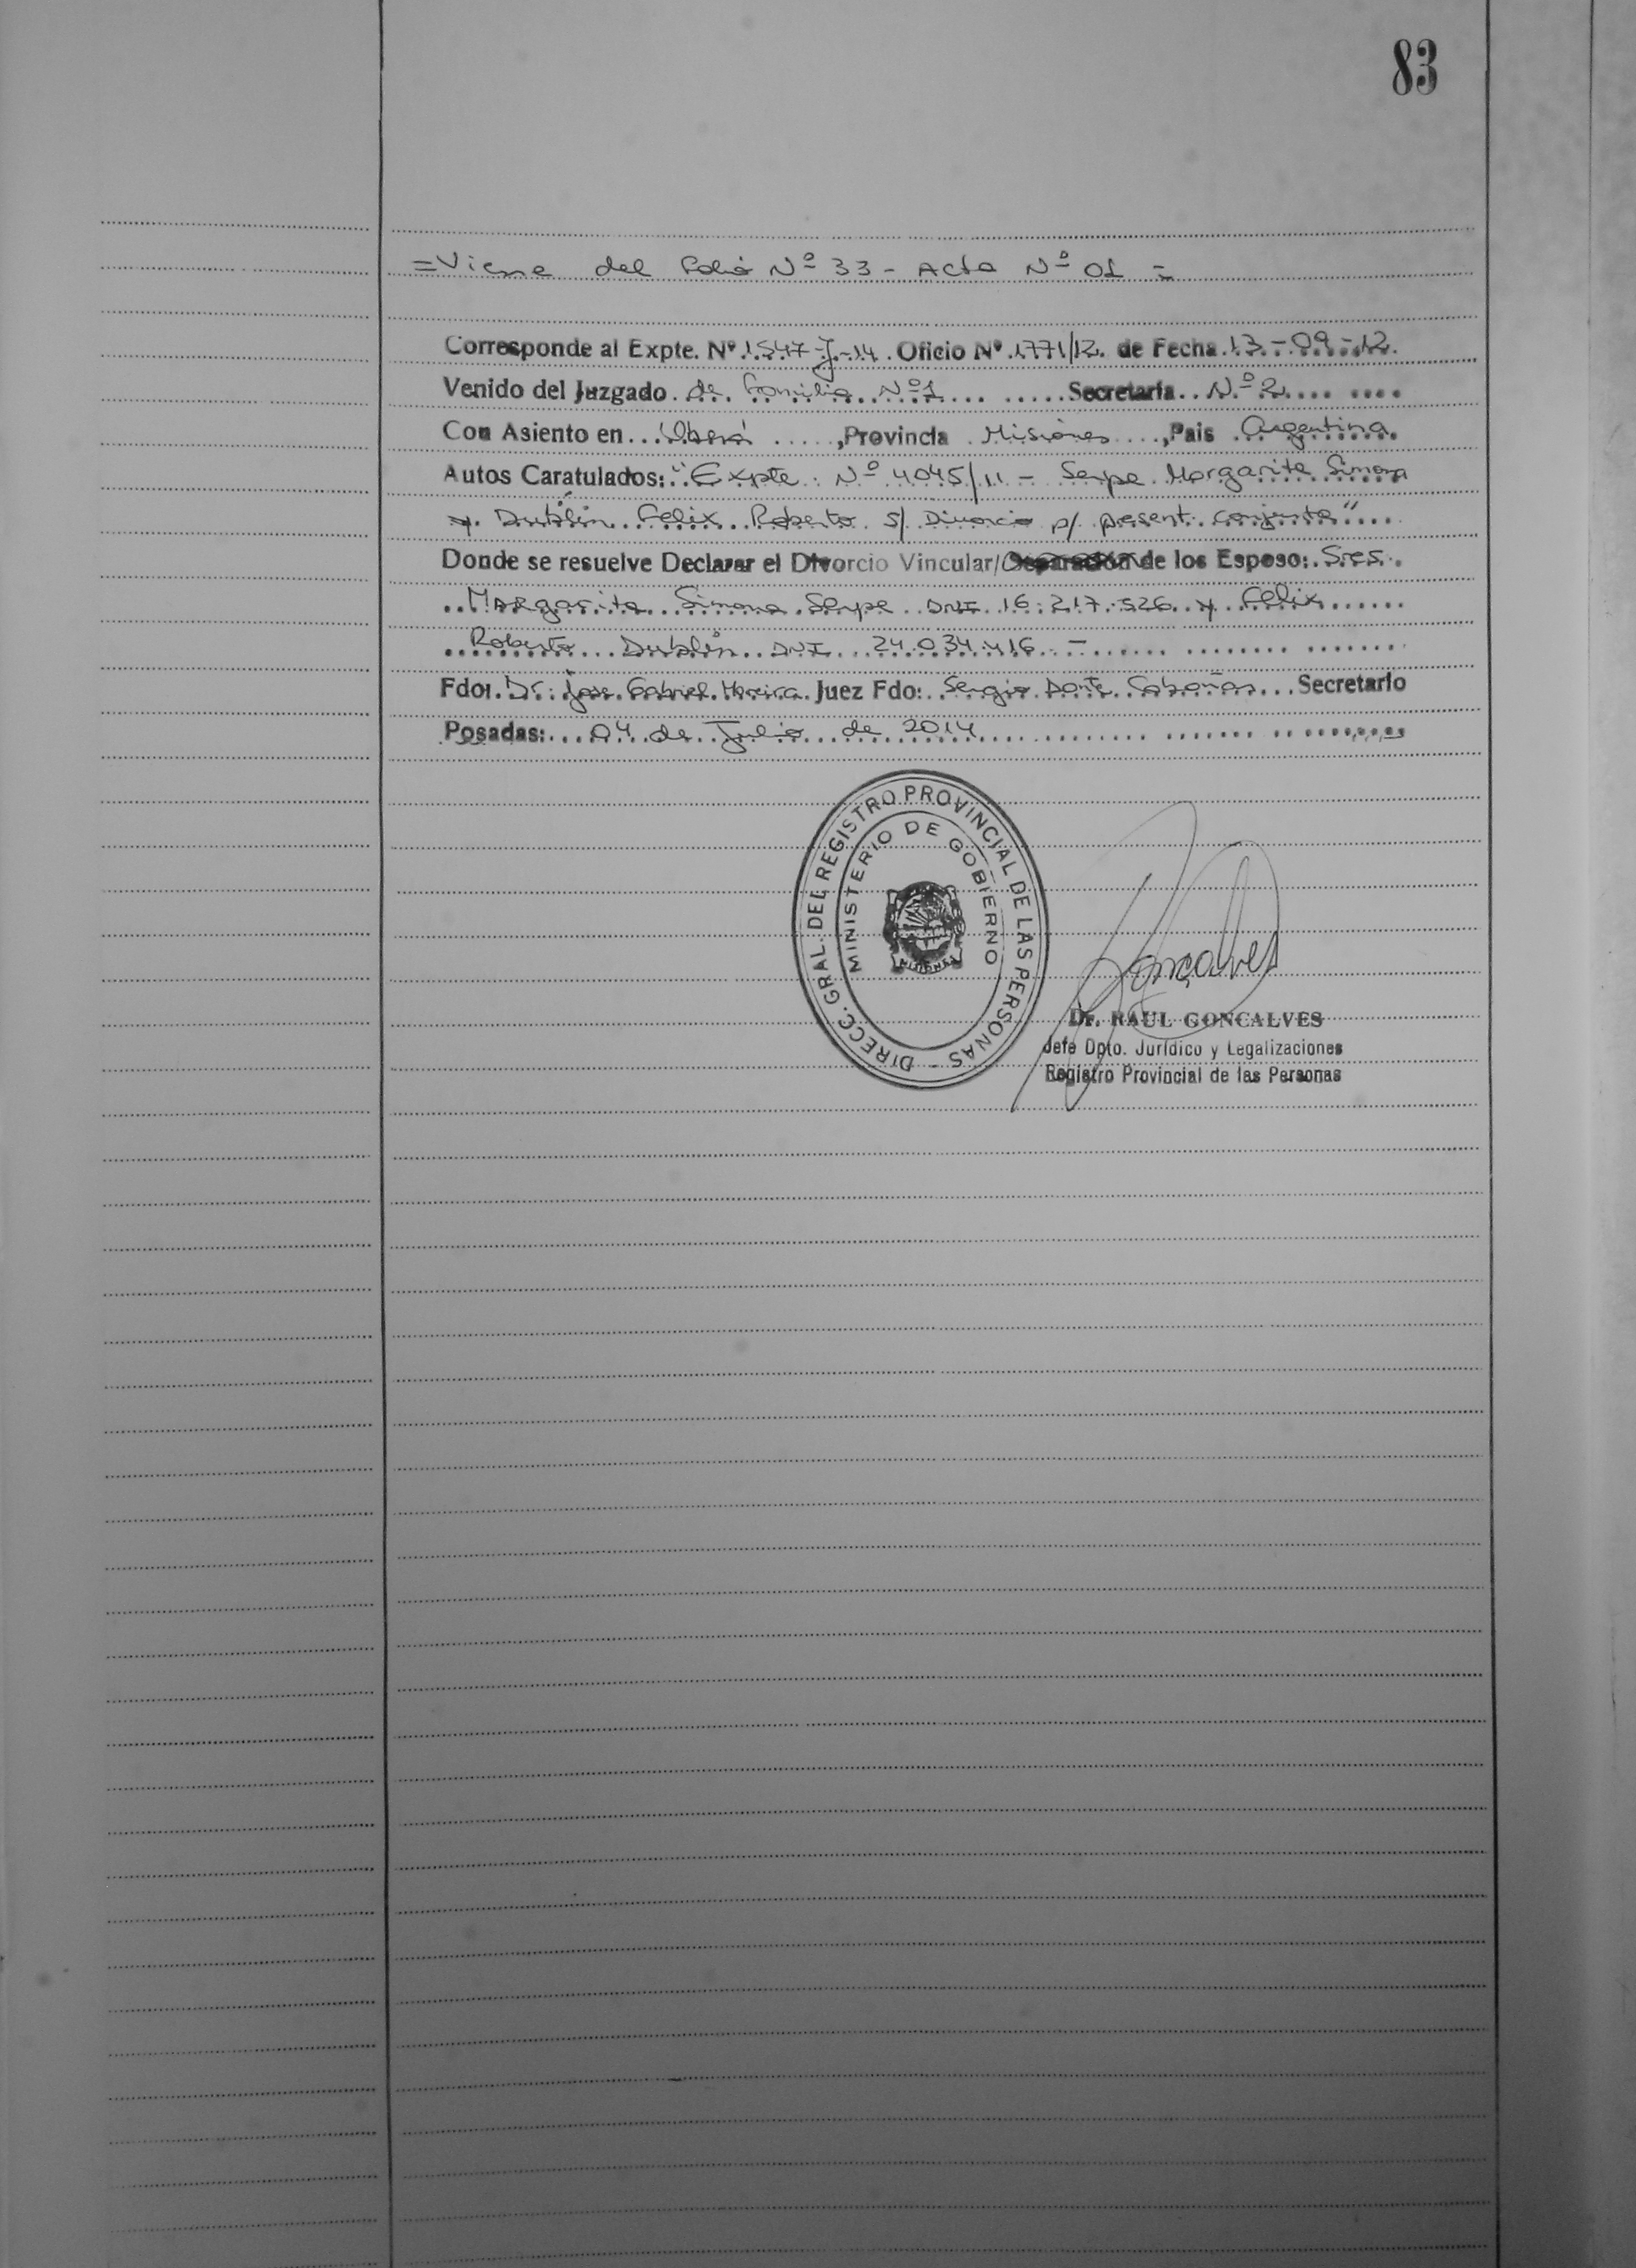 83
=Viene del Folio Nº 33 - Acta Nº 01 =
Corresponde al Expte. Nº 1547-J-14. Oficio Nº 1771/12. de Fecha 13-09-12.
Venido del Juzgado de Familia Nº1 Secretaría Nº 2
Con Asiento en Oberá, Provincia Misiones, Pais Argentina
Autos Caratulados: "Expte. Nº 4045/11 - Serpe Margarita Simona
y Dublin Felix Roberto s/ Divorcio p/ present. conjunta"
Donde se resuelve Declarar el Divorcio Vincular/Separación de los Esposo: Sres.
Margarita Simona Serpe DNI 16.217.526 y Felix
Roberto Dublin DNI 24.034.416 -
Fdo: Dr. Jose Gabriel Moreira Juez Fdo: Sergio Dante Cabañas Secretario
Posadas: 04 de Julio de 2014
DIRECC. GRAL. DEL REGISTRO PROVINCIAL DE LAS PERSONAS -
MINISTERIO DE GOBIERNO
MISIONES
Goncalves
Dr. RAUL GONCALVES
Jefe Dpto. Jurídico y Legalizaciones
Registro Provincial de las Personas